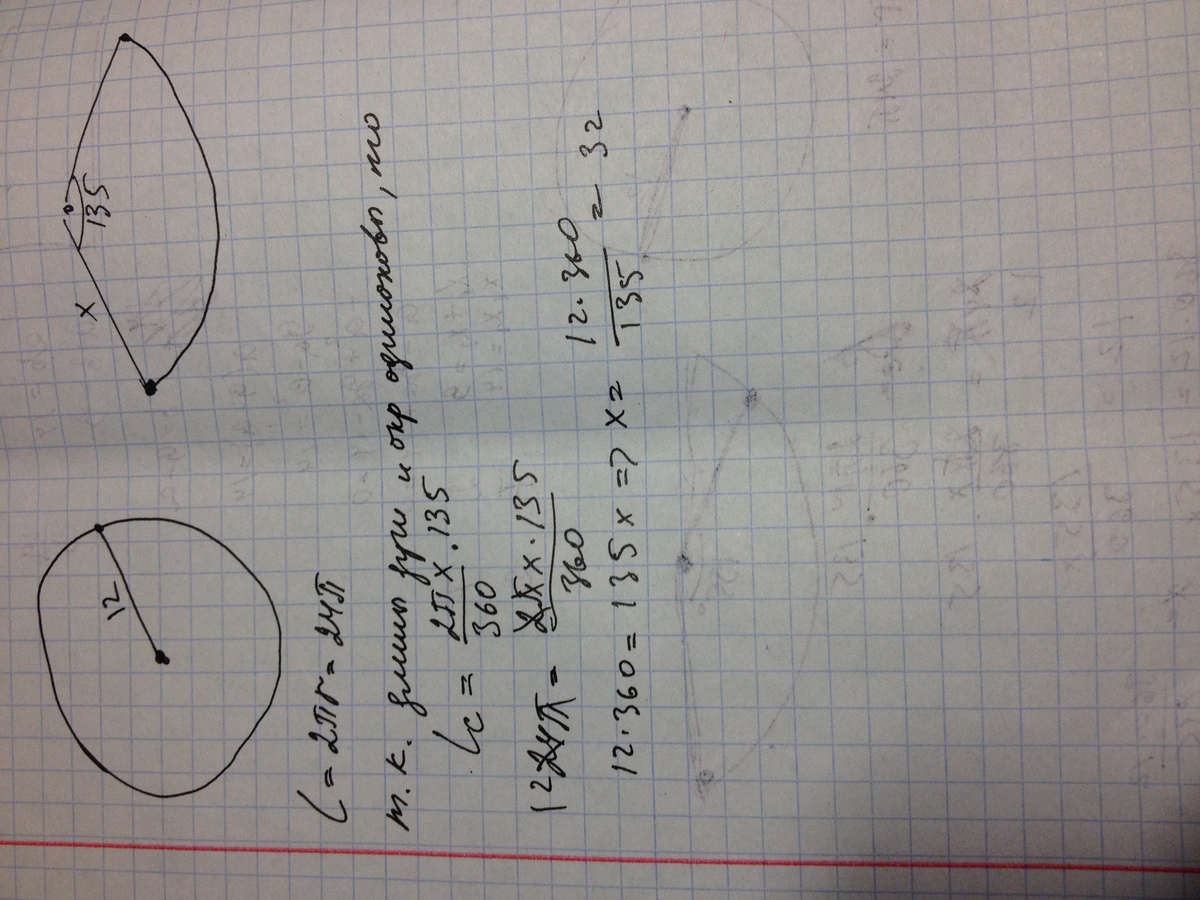 12
x
135
L = 2πr = 24π
т.к. длина дуги и окр одинаковы, то
Lc = 2πx·135 / 360
12 24π = 2πx·135 / 360
12·360 = 135x => x = 12·360 / 135 = 32